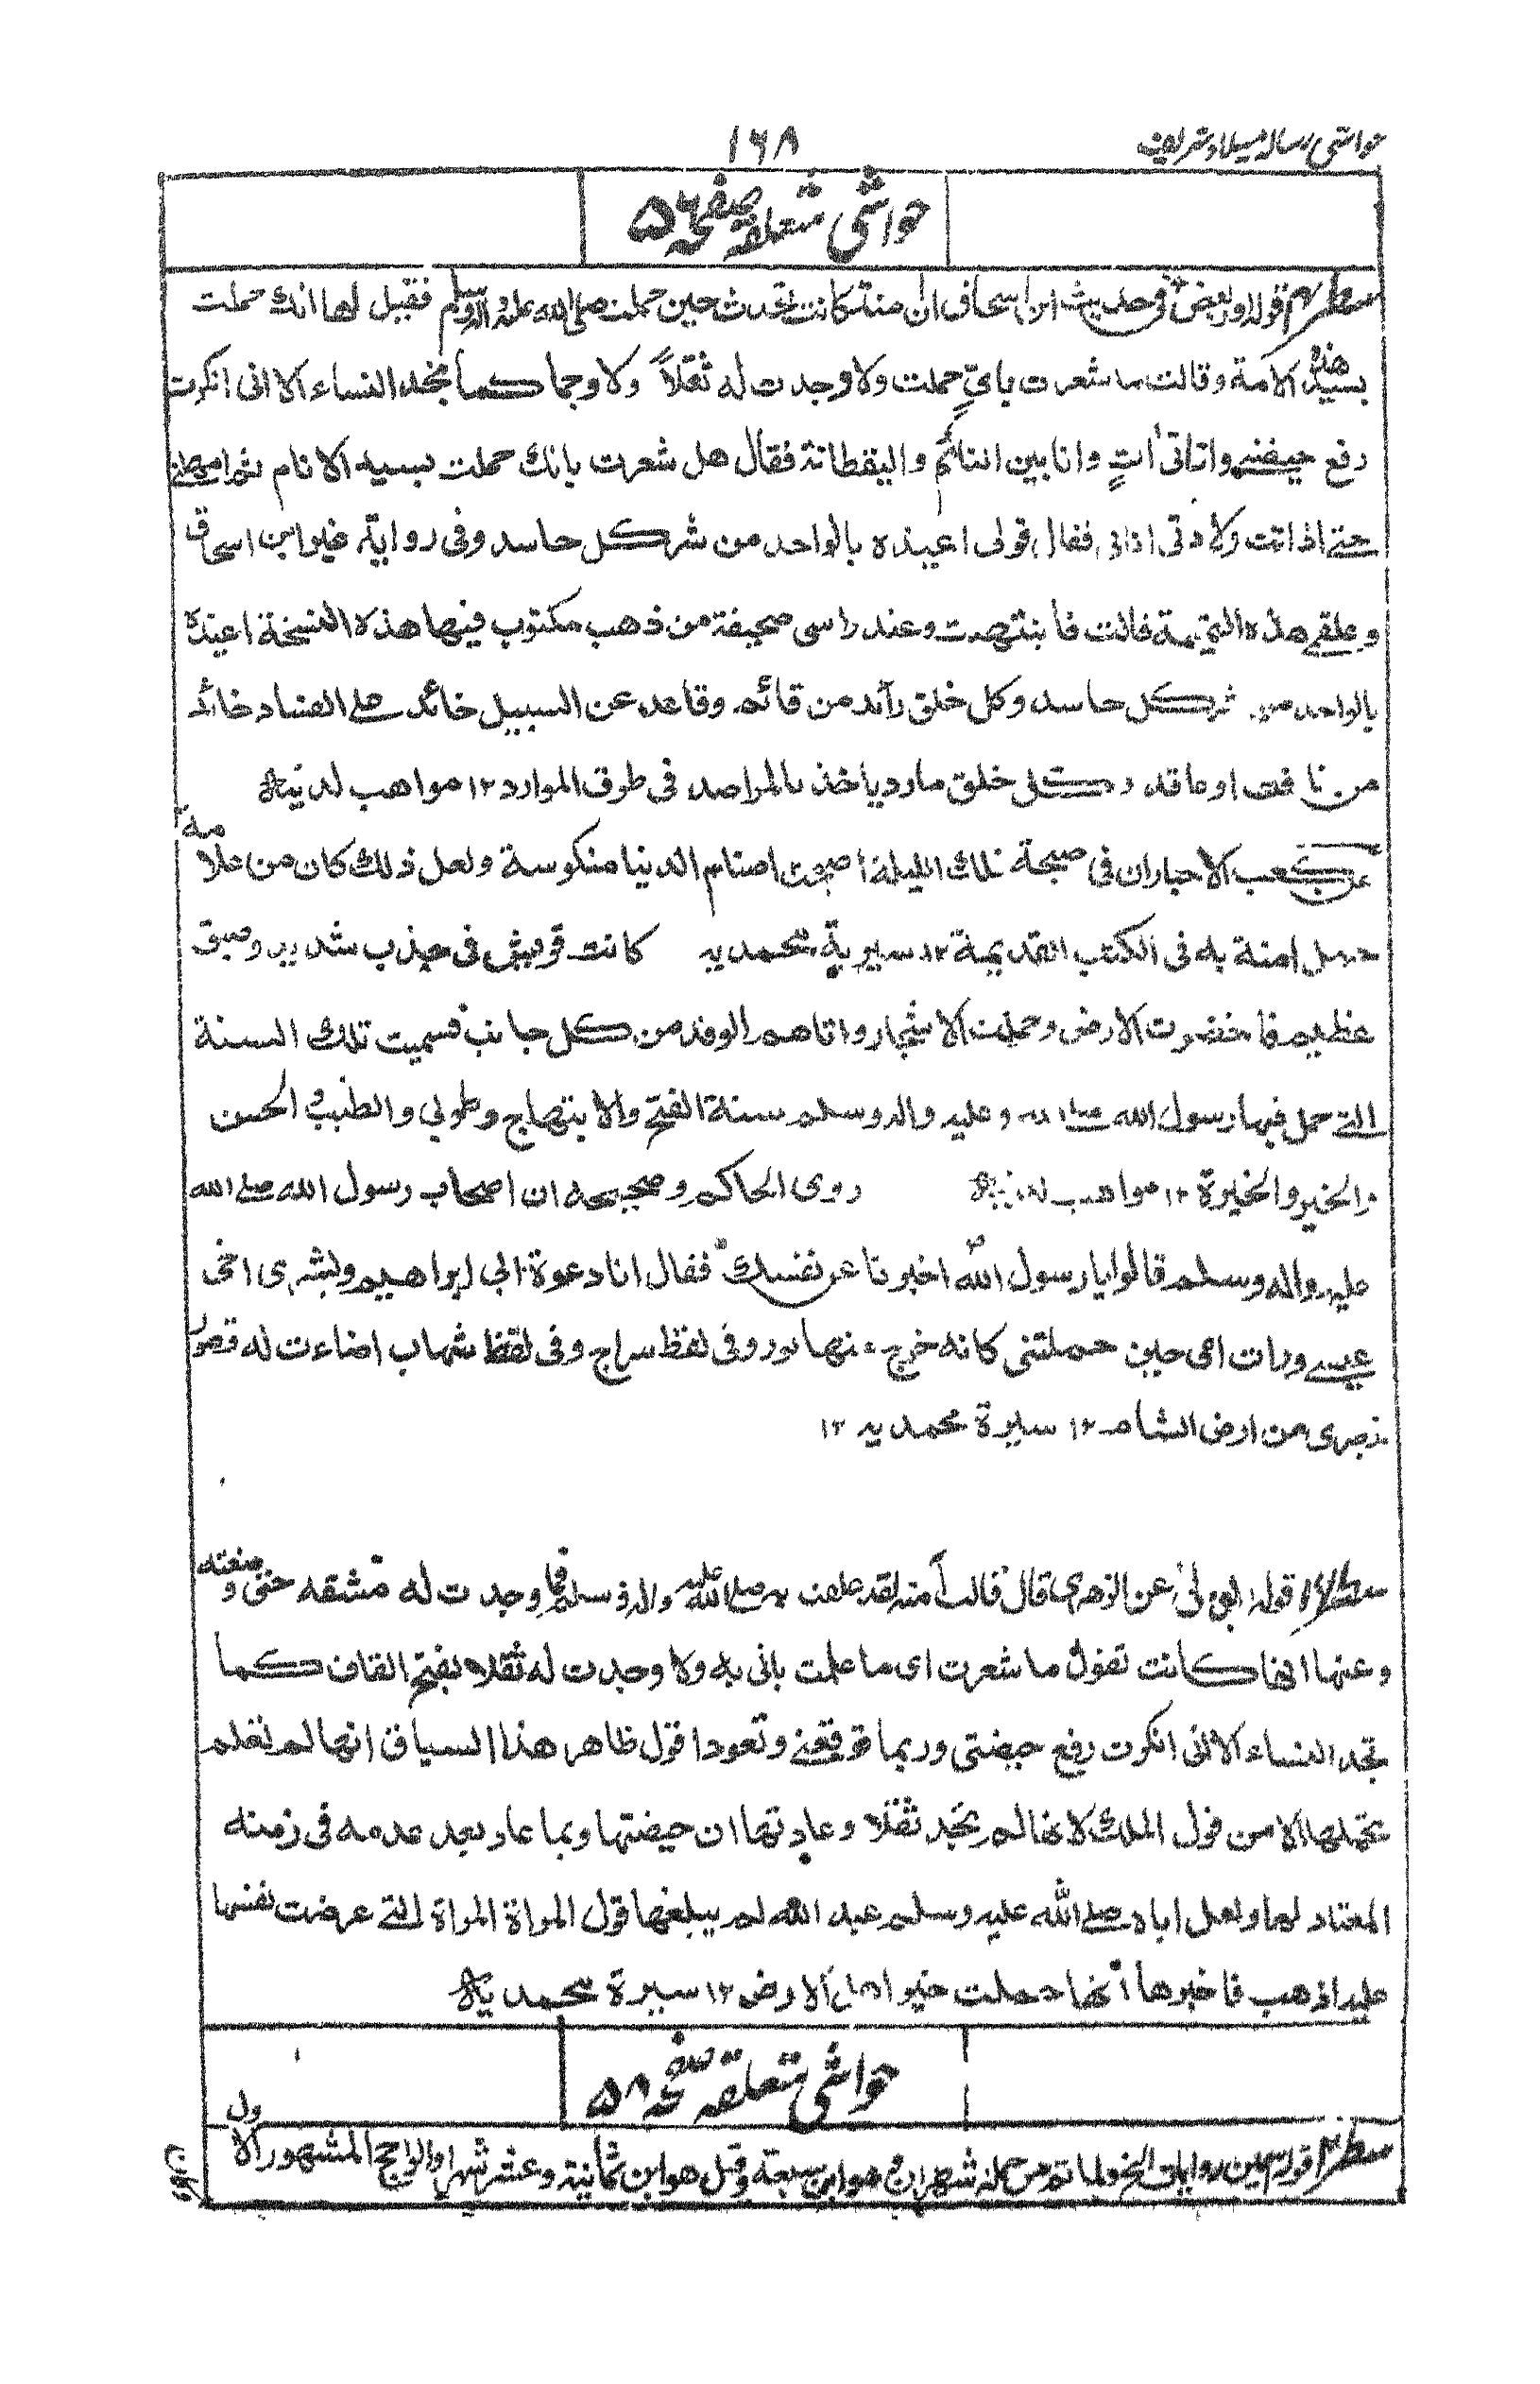 حواشی رسالہ میلاد شریف
۱۶۸
حواشی متعلقہ صفحہ ۵۶
سطر ۴ قولہ اور بعض وفی حدیث ابن اسحاق ان امنة کانت تحدث حین حملت صلی اللہ علیہ والہ وسلم فقیل لها انك حملت
بسید هذه الامة وقالت ما شعرت بانی حملت ولا وجدت له ثقلاً ولا وحما کما تجد النساء الا انی انکرت
رفع حیضتے واتانی اٰتٍ وانا بین النائم والیقظانة فقال هل شعرت بانك حملت بسید الانام ثم امهلنے
حتے اذا دنت ولادتی اتانی فقال قولی اعیذه بالواحد من شر کل حاسد وفی روایة غیر ابن اسحاق
وعلقے هذه التمیمة قالت فانتبهت وعند راسی صحیفة من ذهب مکتوب فیها هذه النسخة اعیذه
بالواحد من شر کل حاسد وکل خلق رآئد من قائم وقاعد عن السبیل حائد علے الفساد جاهد
من نافث او عاقد وکل خلق مارد یاخذ بالمراصد فی طرق الموارد ۱۲ مواهب لدنیہ
عن کعب الاحبار ان فی صبیحة تلك اللیلة اصبحت اصنام الدنیا منکوسة ولعل ذلك کان من علامة
حمل امنة به فی الکتب القدیمة ۱۲ سیرة محمدیہ کانت قریش فی جدب شدید وضیق
عظیم فاخضرت الارض وحملت الاشجار واتاهم الوفد من کل جانب فسمیت تلك السنة
التے حمل فیها رسول الله صلے الله علیہ والہ وسلم سنة الفتح والابتهاج وطوبی والطیب والحسن
والخیر والخیرة ۱۲ مواهب لدنیہ روی الحاکم وصححه ان اصحاب رسول الله صلے الله
علیہ والہ وسلم قالوا یا رسول الله اخبرنا عن نفسك فقال انا دعوة ابی ابراهیم وبشری اخی
عیسے ورات امی حین حملتنی کانه خرج منها نور وفی لفظ سراج وفی لفظ شهاب اضاءت له قصور
بصری من ارض الشام ۱۲ سیرة محمدیہ ۱۲
قولہ عن الزهری قال قالت امنة لقد علقت بہ صلے اللہ علیہ والہ وسلم فما وجدت له مشقه حتی وضعته
وعنها انها کانت تقول ما شعرت ای ما علمت بانی به ولا وجدت له ثقلا بفتح القاف کما
تجد النساء الا انی انکرت رفع حیضتی وربما ترفعنے وتعود اقول ظاهر هذا السیاق انها لم تعلم
بحملها الا من قول الملك لانها لم تجد ثقلا وعادتها ان حیضتها ربما عاد بعد عدمه فی زمنه
المعتاد لها ولعل اباه صلے الله علیہ وسلم عبد الله لم یبلغها قول المراة المراة التے عرضت نفسها
علیہ اذهب فاخبرها انها حملت خیر اهل الارض ۱۲ سیرة محمدیہ
حواشی متعلقہ صفحہ ۵۸
سطر ۳ قولہ روایات الخ ولما تم من حمله شهران وهو ابن سبعة وقیل هو ابن ثمانیة وعشر شهرا والراجح المشهور الاول